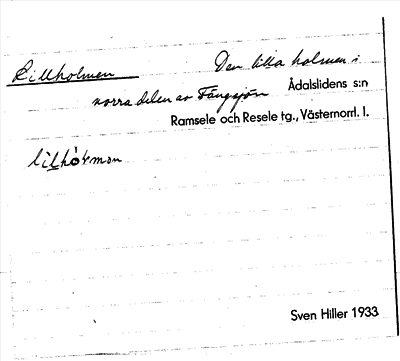 Lillholmen Den lilla holmen i
norra delen av Fångsjön Ådalslidens s:n
Ramsele och Resele tg., Västernorrl. l.
Sven Hiller 1933